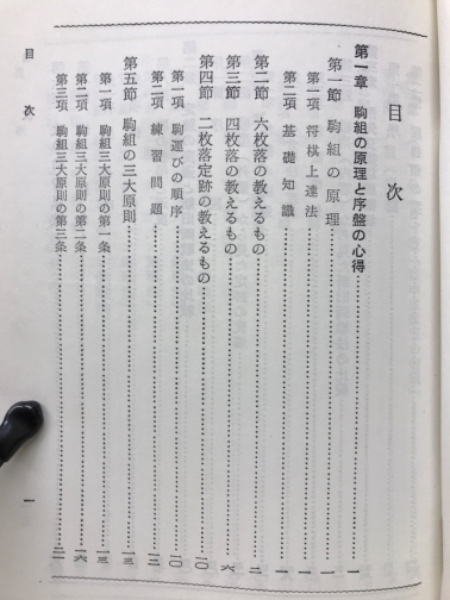 目次
第一章 駒組の原理と序盤の心得……一
第一節 駒組の原理……一
第一項 将棋上達法……一
第二項 基礎知識……一
第二節 六枚落の教えるもの……二
第三節 四枚落の教えるもの……六
第四節 二枚落定跡の教えるもの……一〇
第一項 駒運びの順序……一〇
第二項 練習問題……一二
第五節 駒組の三大原則……一三
第一項 駒組三大原則の第一条……一三
第二項 駒組三大原則の第二条……一六
第三項 駒組三大原則の第三条……二一
目次
一